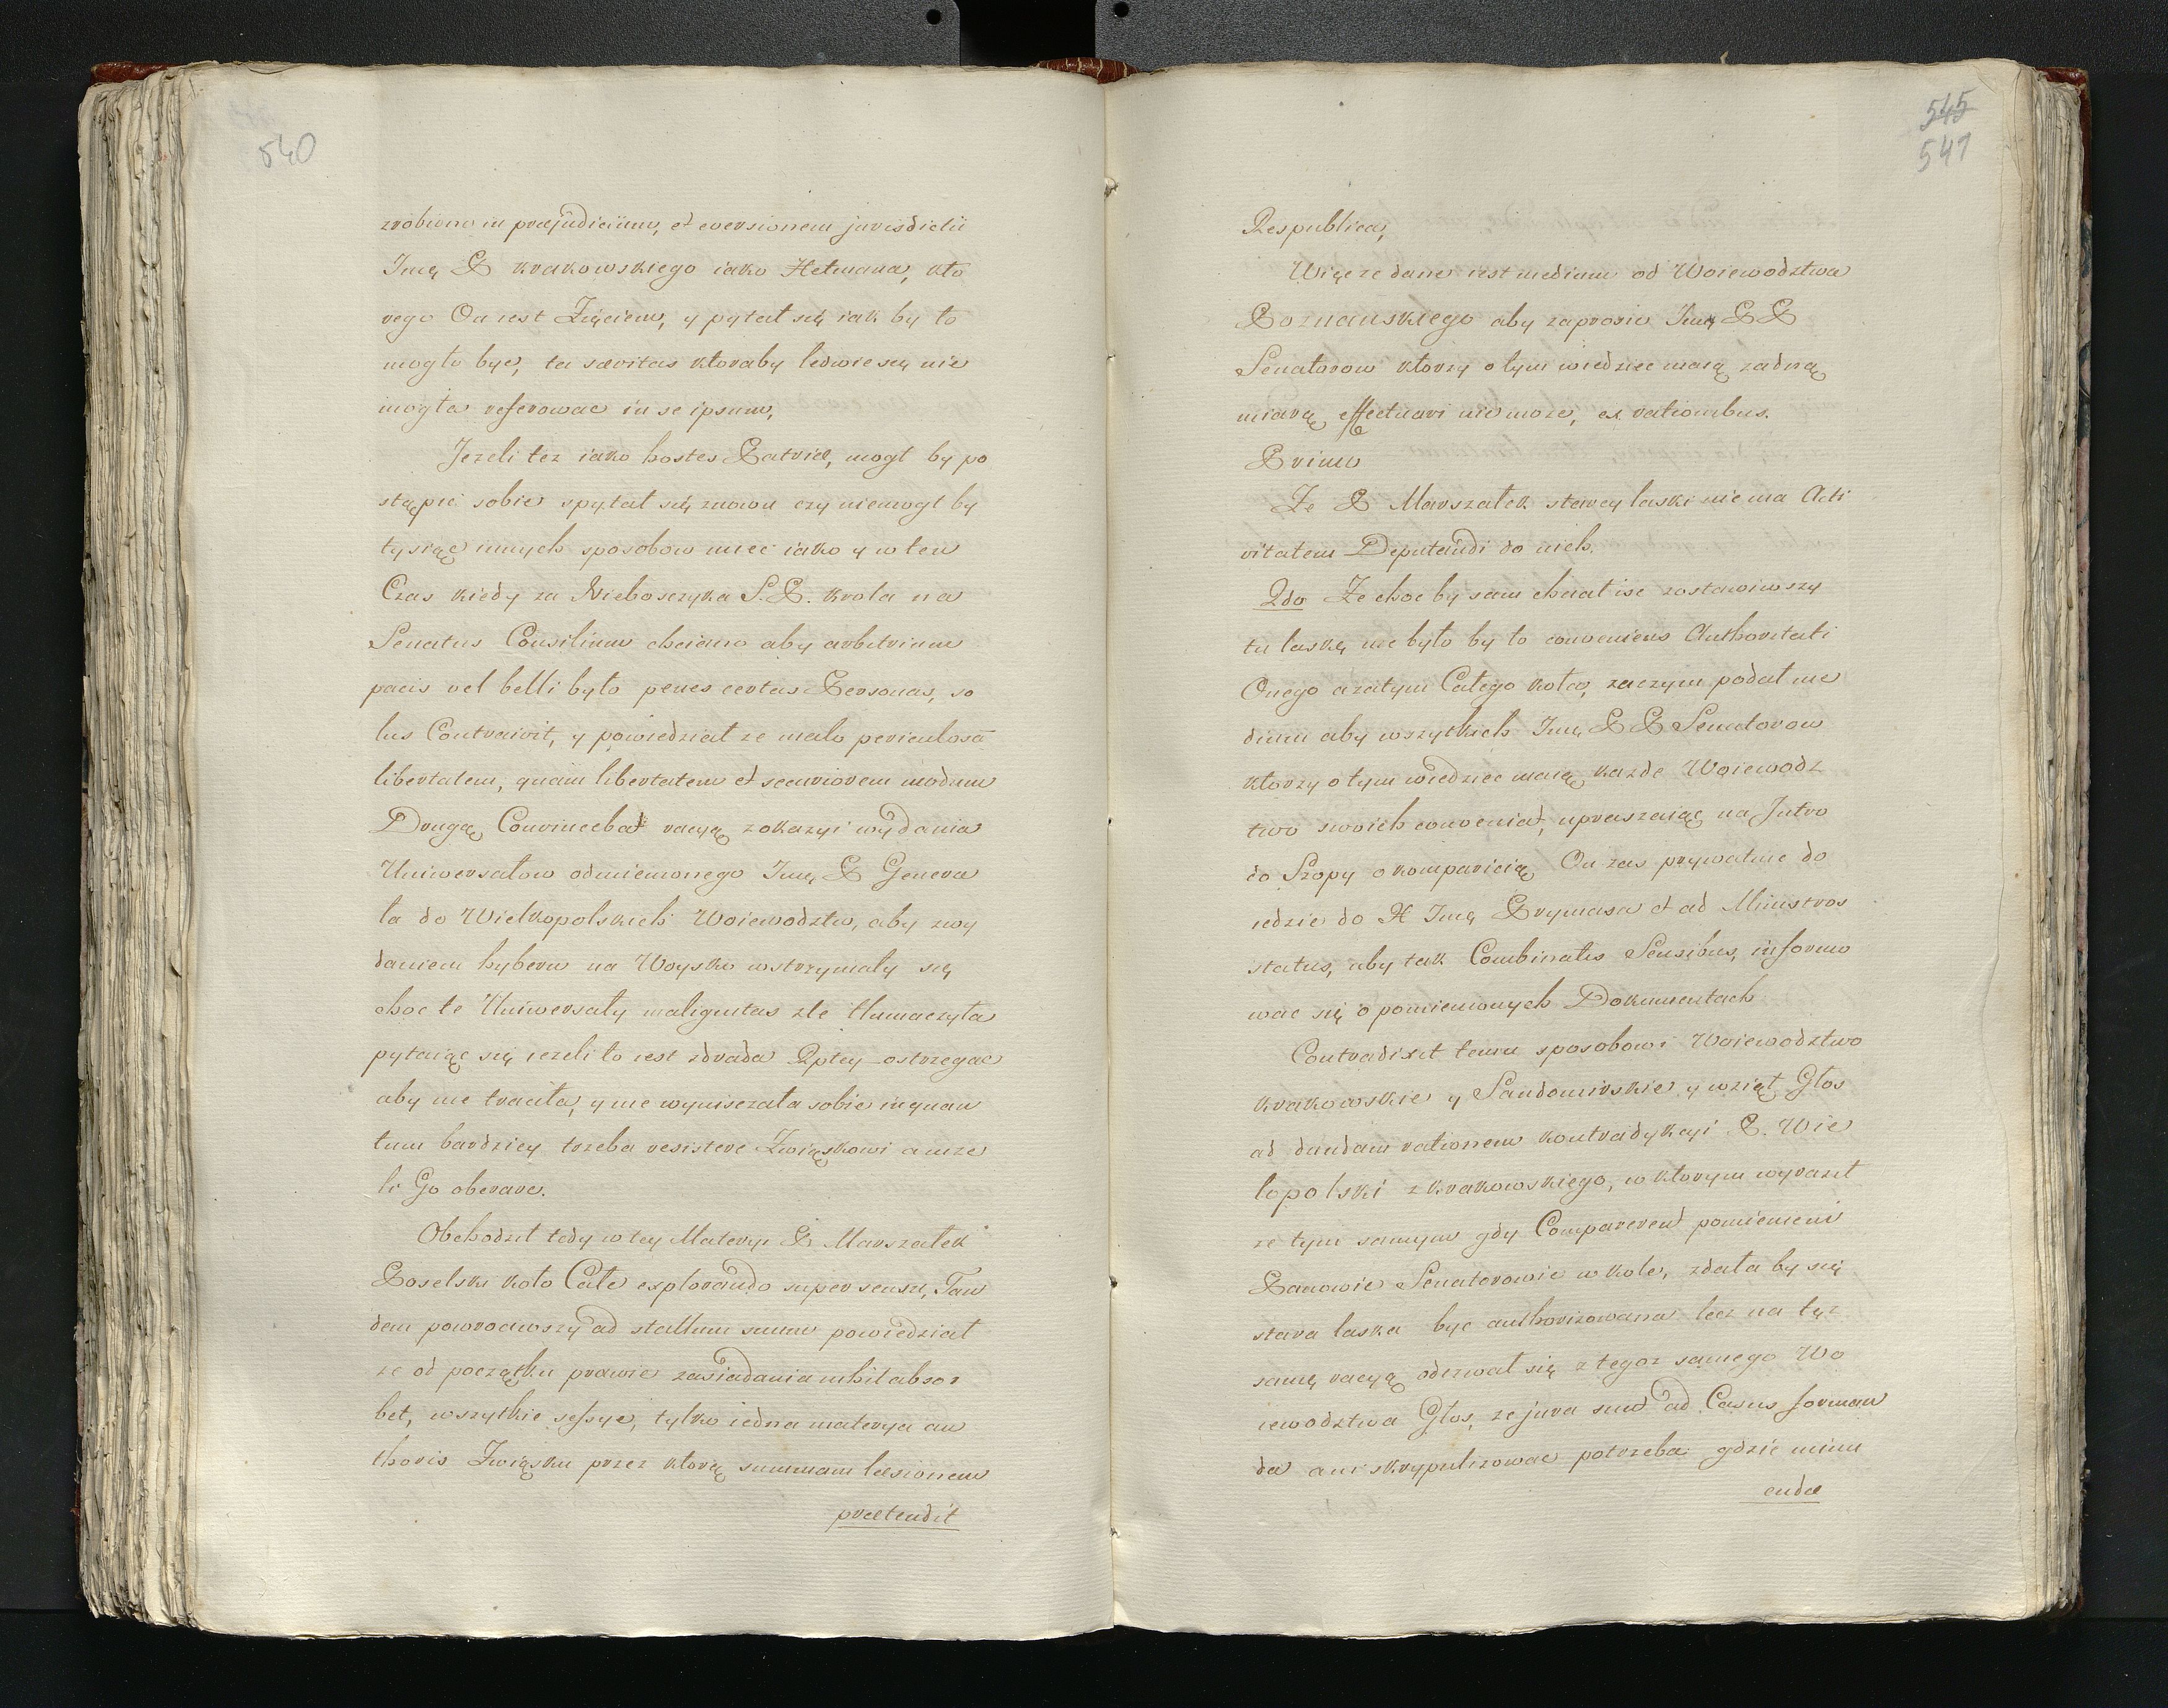 540
zrobiono in præjudicium, et eversionem jurisdictii
Imę P krakowskiego iako Hetmana, kto
rego On iest Zięciem, y pytał się iak by to
mogło byc, ta sævitas ktoraby ledwie się nie
mogła reserowac in se ipsum,
Jezeli tez iako hostes Patriæ, mogł by po
stąpic sobie spytał się znowu czy niemogł by
tysiąc innych sposobow miec iako y w ten
Czas kiedy za Nieboszczyka S. P. krola na
Senatus Consilium chciano aby arbitrium
pacis vel belli było penes certas Personas, so
lus Contraivit, y powiedział ze malo periculosā
libertatem, quam libertatem et securiorem modum
Drugą Convincebat racyą z okazyi wydania
Uniwersałow odmienionego Imę P Genera
ła do Wielkopolskich Woiewodztw, aby z wy
daniem hybern na Woysko wstrzymały się
choc te Uniwersały malignitas zle tłumaczyła
pytaiąc się iezeli to iest zdrada Rptey ostrzegac
aby nie traciła, y nie wyniszczała sobie inquan
tum bardziey trzeba resistere Związkowi anize
li Go oberare.
Obchodził tedy w tey Materyi P Marszałek
Poselski koło Całe explorando super sensu, Tan
dem powrociwszy ad stallum suum powiedział
ze od początku prawie zasiadania nihil absor
bet, wszytkie sessye, tylko iedna materya au
thoris Związku przez ktorą summam læsionem
prætendit
545
541
Respublica,
Więc ze dane iest medium od Woiewodztwa
Poznanskiego aby zaprosic Imę P P
Senatorow ktorzy o tym wiedziec maią zadną
miarą effectuari nie moze, ex rationibus.
Primo
Ze P Marszałek starey laski nie ma Acti
vitatem Deputandi do nich.
2do Ze choc by sam chciał isc zostawiwszy
tu laskę nie było by to conveniens Authoritati
Onego a zatym Całego koła, zaczym podał me
dium aby wszytkich Imę P P Senatorow
ktorzy o tym wiedziec maią kazde Woiewodz
two swoich conveniat, upraszaiąc na Jutro
do Szopy o komparicią On zas prywatnie do
iedzie do X Imę Prymasa et ad Ministros
status, aby tak Combinatis Sensibus, informo
wac się o pomienionych Dokumentach
Contradixit temu sposobowi Woiewodztwo
krakowskie y Sandomirskie y wziął Głos
ad dandam rationem kontradykcyi P. Wie
lopolski z krakowskiego, w ktorym wyraził
ze tym samym gdy Comparerent pomienieni
Panowie Senatorowie w kole, zdała by się
stara laska byc authorizowana lecz na tęz
samę racyą odezwał się z tegoz samego Wo
iewodztwa Głos, ze jura sunt ad Casus forman
da ani skrypulizowac potrzeba gdzie minu
endæ